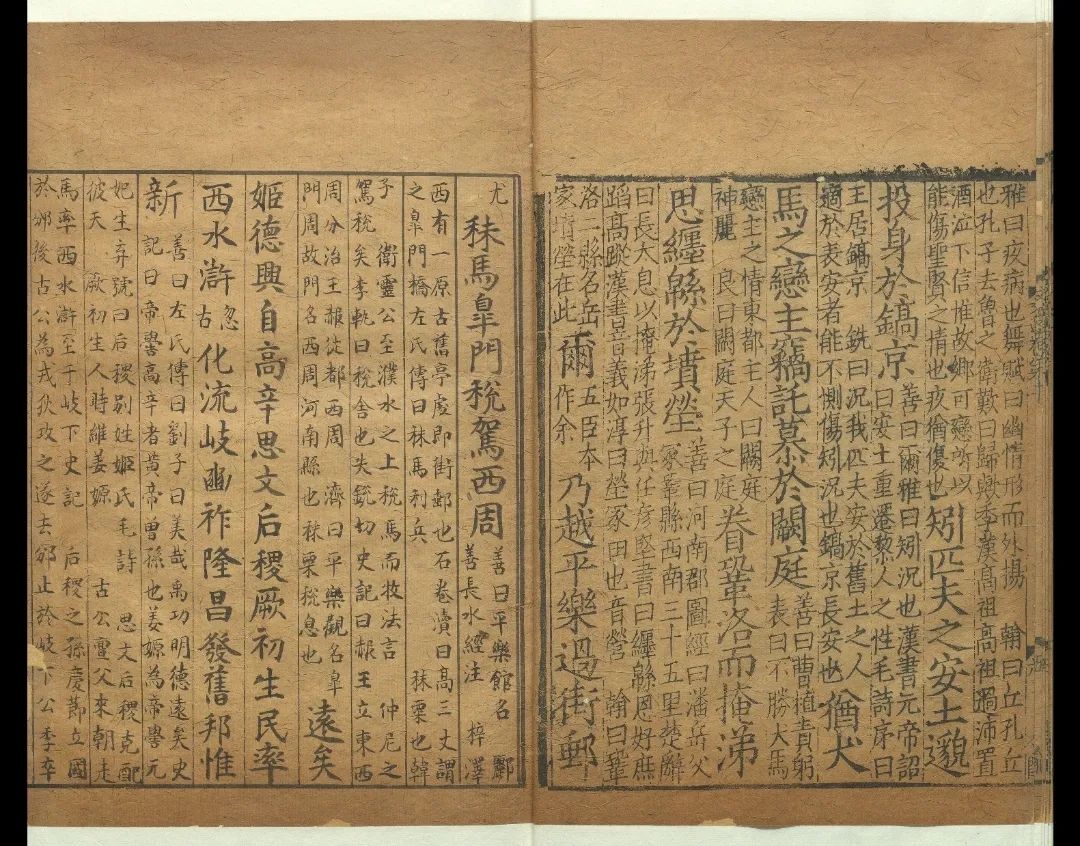 雅曰疚病也舞賦曰幽情形而外揚　翰曰丘孔丘
也孔子去魯之衛歎曰歸歟季漢高祖高祖過沛置
酒泣下信惟故鄉可戀所以
能傷聖賢之情也疚猶傷也
矧匹夫之安土邈
投身於鎬京
善曰爾雅曰矧況也漢書元帝詔
曰安土重遷黎人之性毛詩序曰
王居鎬京　銑曰況我匹夫安於舊土之人
適於表安者能不惻傷矧況也鎬京長安也
猶犬
馬之戀主竊託慕於闕庭
善曰曹植責躬
表曰不勝犬馬
戀主之情東都主人曰闕庭
神麗　良曰闕庭天子之庭
眷鞏洛而掩涕
思纏緜於墳塋
善曰河南郡圖經曰潘岳父
冢鞏縣西南三十五里楚辭
曰長太息以掩涕張升與任彥堅書曰纏緜恩好庶
蹈高蹤漢書音義如淳曰塋冢田也音營　翰曰鞏
洛二縣名岳
家墳塋在此
爾
五臣本
作余
乃越平樂過街郵
尤
秣馬皐門稅駕西周
善曰平樂館名　酈
善長水經注　梓澤
西有一原古舊亭處即街郵也石卷瀆曰高三丈謂
之皐門橋左氏傳曰秣馬利兵　秣粟也韓
子　衛靈公至濮水之上稅馬而牧法言　仲尼之
駕稅矣李軌曰稅舍也失銳切史記曰赧王立東西
周分治王赧徙都西周　濟曰平樂觀名皐
門周故門名西周河南縣也秣粟稅息也
遠矣
姬德興自高辛思文后稷厥初生民率
西水滸
忽
古
化流岐豳祚隆昌發舊邦惟
新
善曰左氏傳曰劉子曰美哉禹功明德遠矣史
記曰帝嚳高辛者黃帝曾孫也姜嫄為帝嚳元
妃生弃號曰后稷別姓姬氏毛詩　思文后稷克配
彼天　厥初生人時維姜嫄　古公亶父來朝走
馬率西水滸至于岐下史記　后稷之孫慶節立國
於邠後古公為戎狄攻之遂去邠止於岐下公季卒